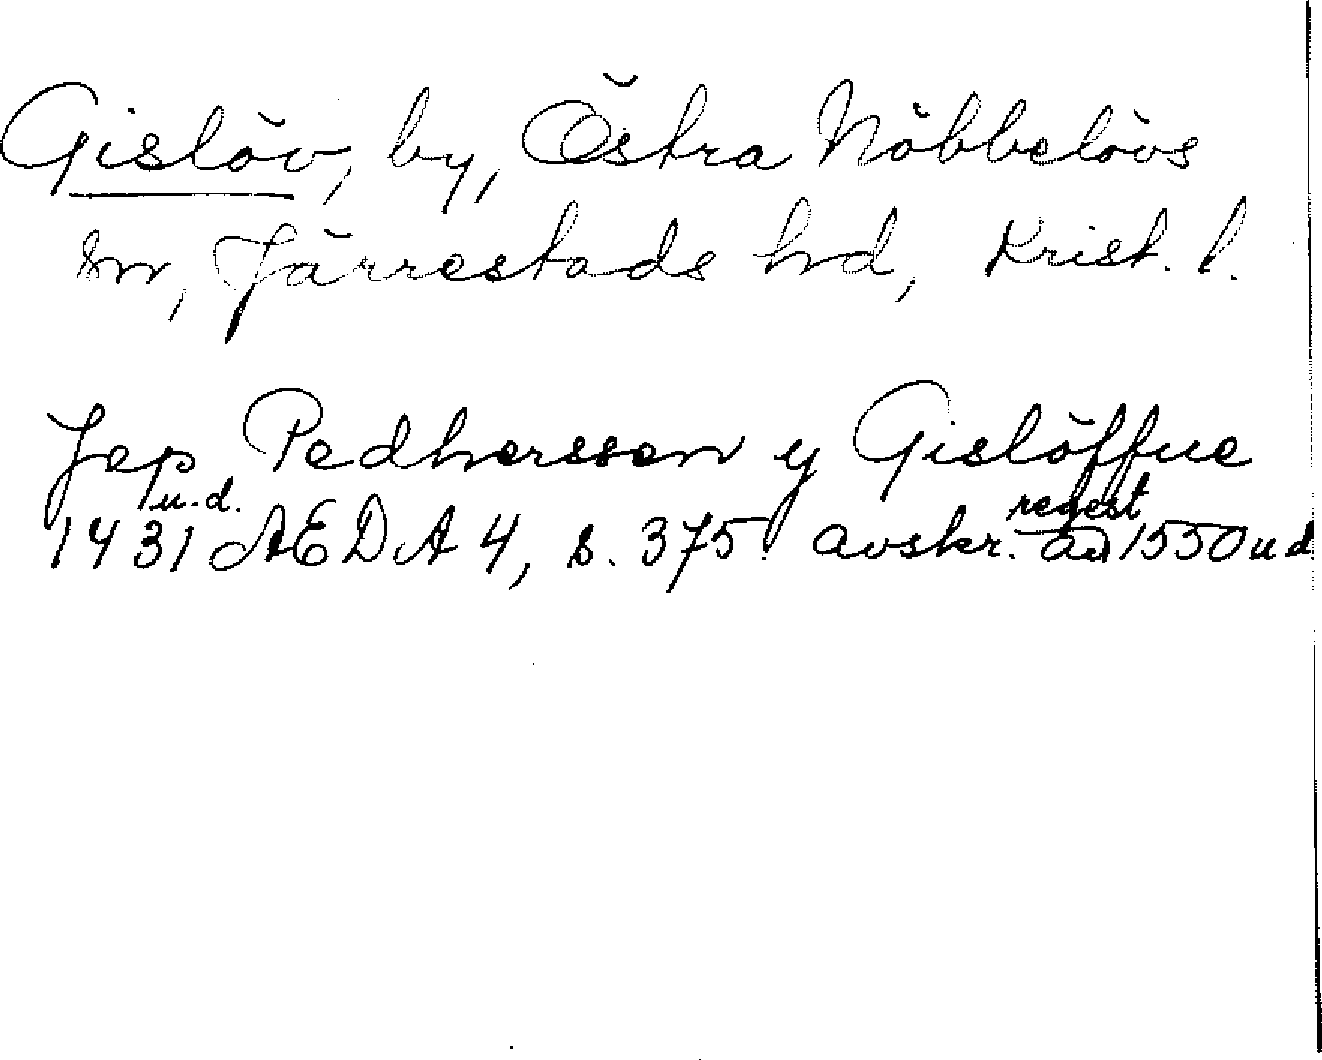 Gislöv, by, Östra Nöbbelövs
sn, Järrestads hd, Krist. l.
Jep Pedhersson y Gislöffue
u.d. regest
1431 AEDA 4, s. 375. avskr. 1550 u d